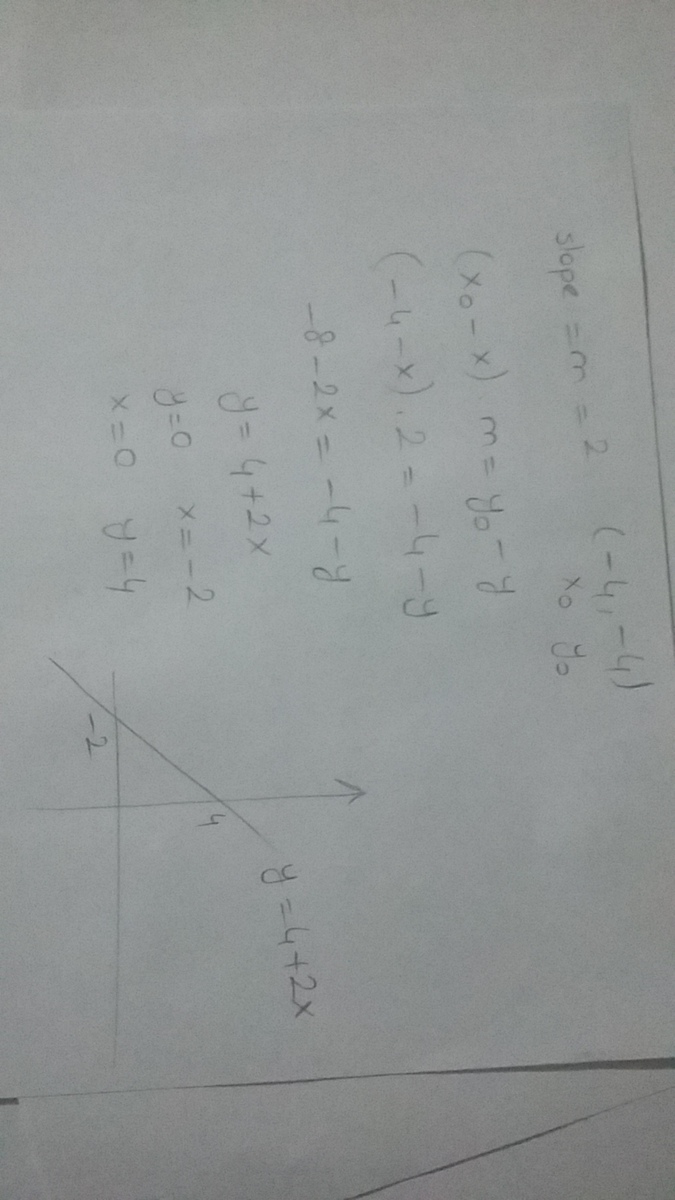 slope = m = 2 (-4, -4)
x₀ y₀
(x₀ - x) . m = y₀ - y
(-4 - x) . 2 = -4 - y
-8 - 2x = -4 - y
y = 4 + 2x
y = 0 x = -2
x = 0 y = 4
y = 4 + 2x
4
-2